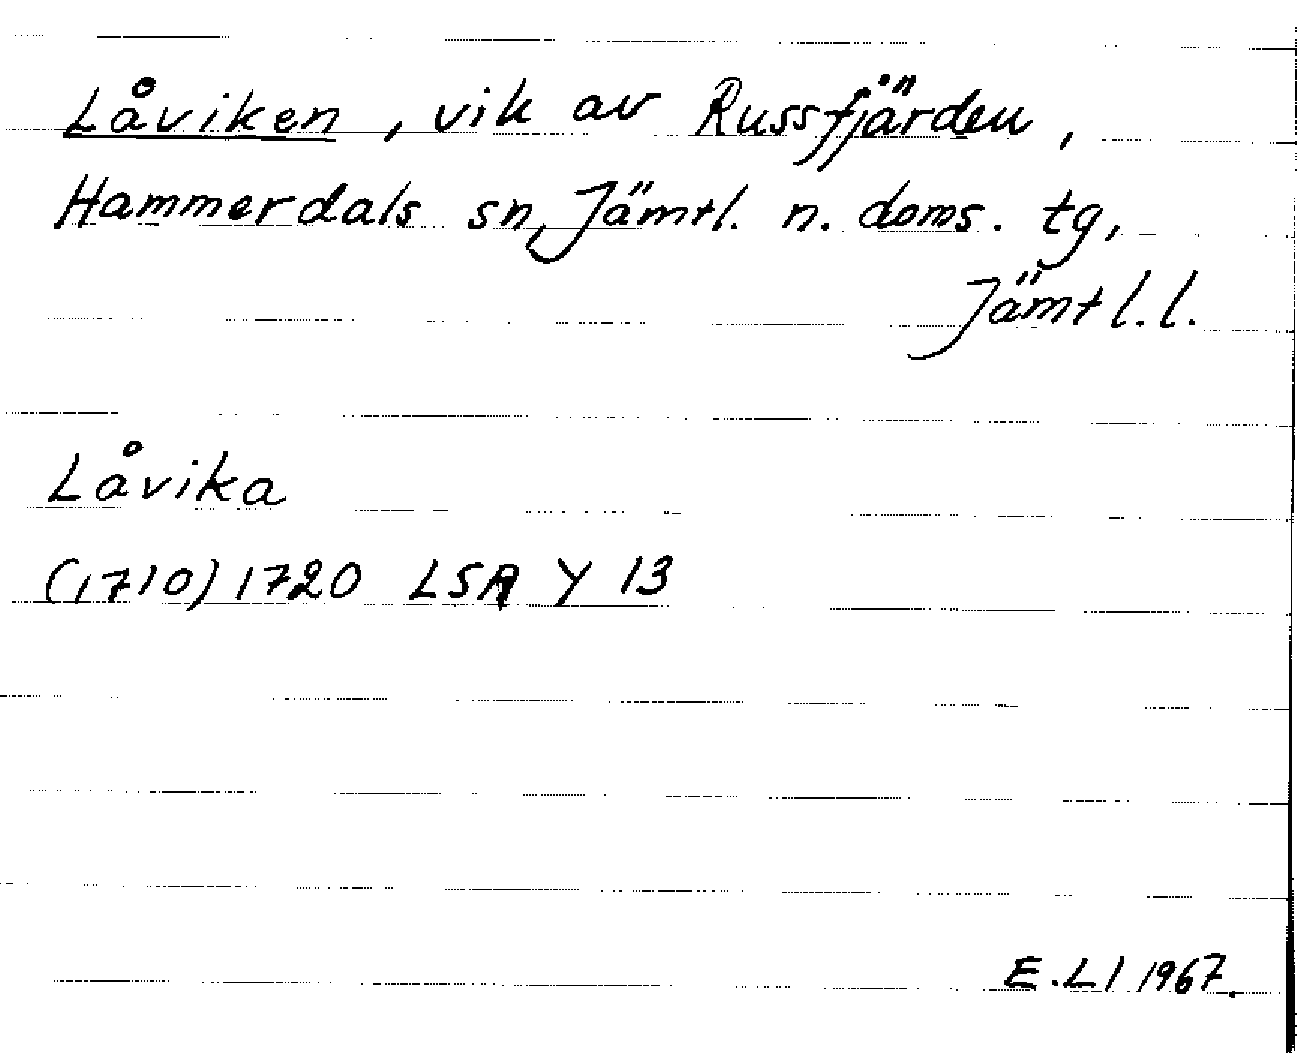 Låviken, vik av Russfjärden,
Hammerdals sn, Jämtl. n. doms. tg,
Jämtl. l.
Låvika
(1710) 1720 LSA Y 13
E. Ll 1967.